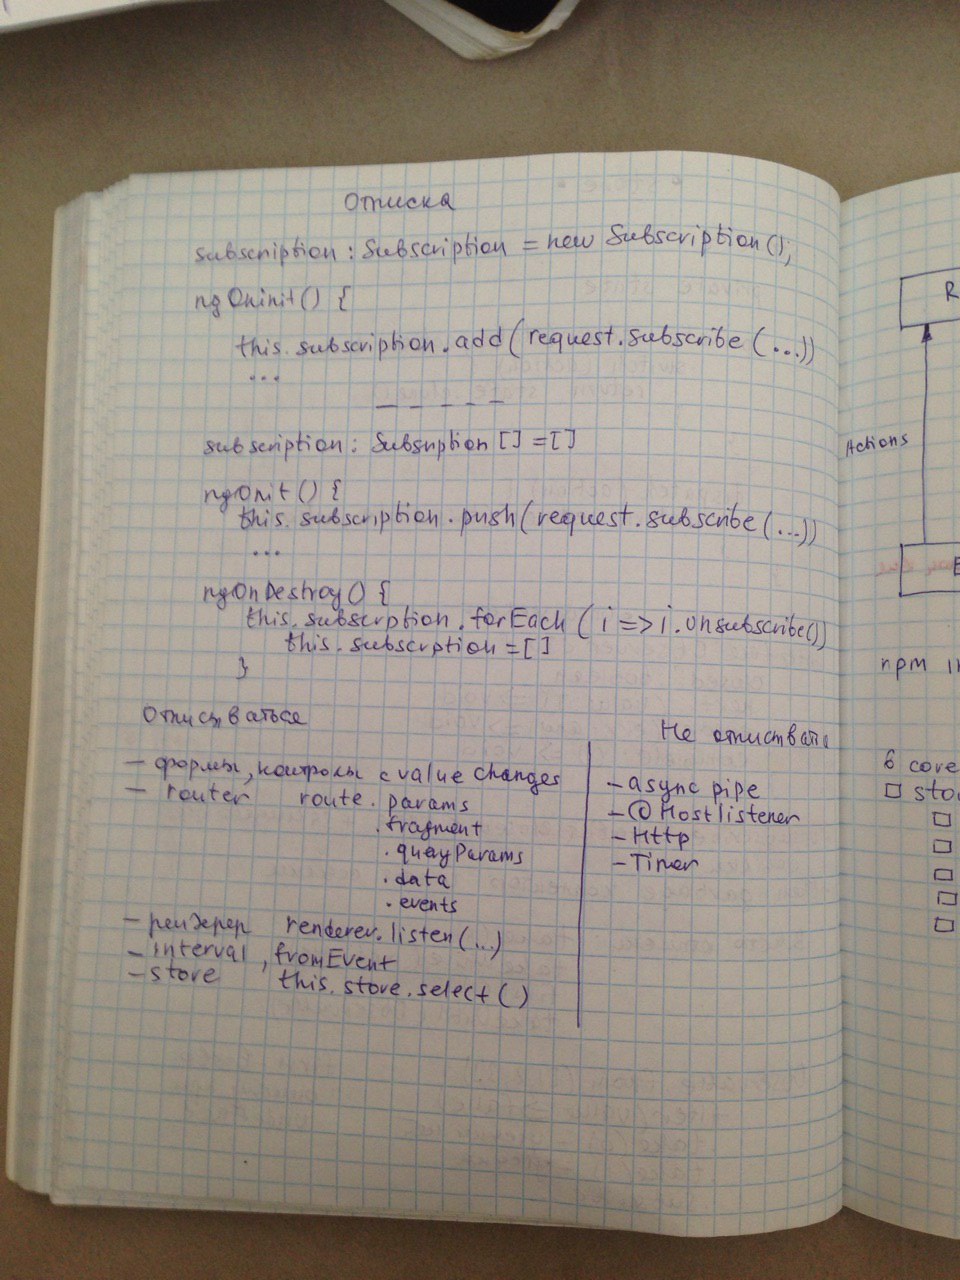 Отписка
subscription : Subscription = new Subscription();
ngOninit() {
this.subscription.add(request.subscribe(...))
...
_ _ _ _ _
subscription: Subsription [] = []
ngOnit() {
this.subscription.push(request.subscribe(...))
...
ngOnDestroy() {
this.subscrption.forEach(i=>i.unsubscribe())
this.subscrption = []
}
Отписываться
- формы, контролы с value changes
- router route.params
.fragment
.queryParams
.data
.events
- рендерер renderer.listen(...)
- interval, fromEvent
- store this.store.select()
Не отписывать
- async pipe
- @Hostlistener
- Http
- Timer
R
Actions
E
npm in
6 core
sto